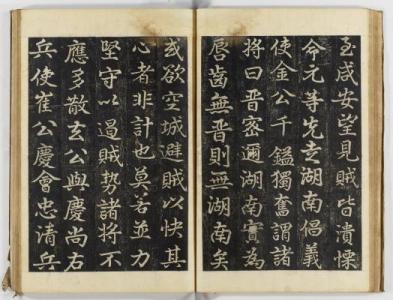 至咸安望見賊皆潰慄
命元等先走湖南倡義
使金公千鎰獨奮謂諸
將曰晋密邇湖南實為
唇齒無晋則無湖南矣
或欲空城避賊以快其
心者非計也莫若並力
堅守以遏賊勢諸將不
應多散去公與慶尚右
兵使崔公慶會忠清兵